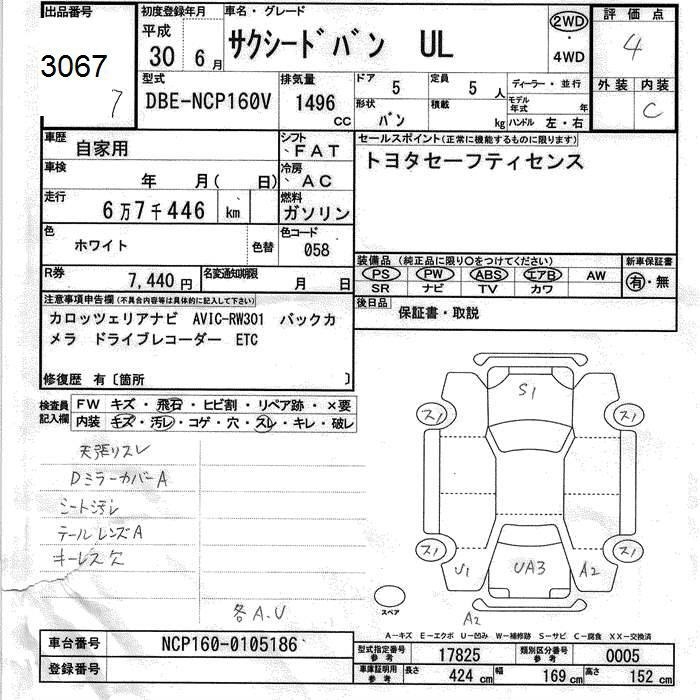 出品番号
3067
7
初度登録年月
平成
30 6月
車名・グレード
サクシードバン UL
2WD
・
4WD
評価点
4
外装 内装
C
型式
DBE-NCP160V
排気量
1496
CC
ドア 5
定員 5人
ディーラー・並行
形状
バン
積載
kg
モデル年式 年
ハンドル 左・右
車歴
自家用
シフト
FAT
車検
年 月( 日)
冷房
AC
走行
6万7千446 km
燃料
ガソリン
色
ホワイト
色替
色コード
058
R券
7,440円
名変通知期限
月 日
セールスポイント(正常に機能するものに限ります)
トヨタセーフティセンス
装備品 (純正品に限り○をつけてください)
PS PW ABS エアB AW
SR ナビ TV カワ
新車保証書
有・無
後日品
保証書・取説
注意事項申告欄(不具合内容等は具体的に記入して下さい)
カロッツェリアナビ AVIC-RW301 バックカ
メラ ドライブレコーダー ETC
修復歴 有〔箇所 〕
検査員
記入欄
FW キズ・飛石・ヒビ割・リペア跡・×要
内装 キズ・汚レ・コゲ・穴・スレ・キレ・破レ
天張リスレ
DミラーカバーA
シート汚レ
テールレンズA
キーレス欠
各A.U
S1
ス1
ス1
ス1
ス1
U1
UA3
A2
A2
スペア
A-キズ E-エクボ U-凹み W-補修跡 S-サビ C-腐食 XX-交換済
車台番号
NCP160-0105186
登録番号
型式指定番号
参考
17825
類別区分番号
参考
0005
車庫証明用
参考
長さ 424cm
幅 169cm
高さ 152cm